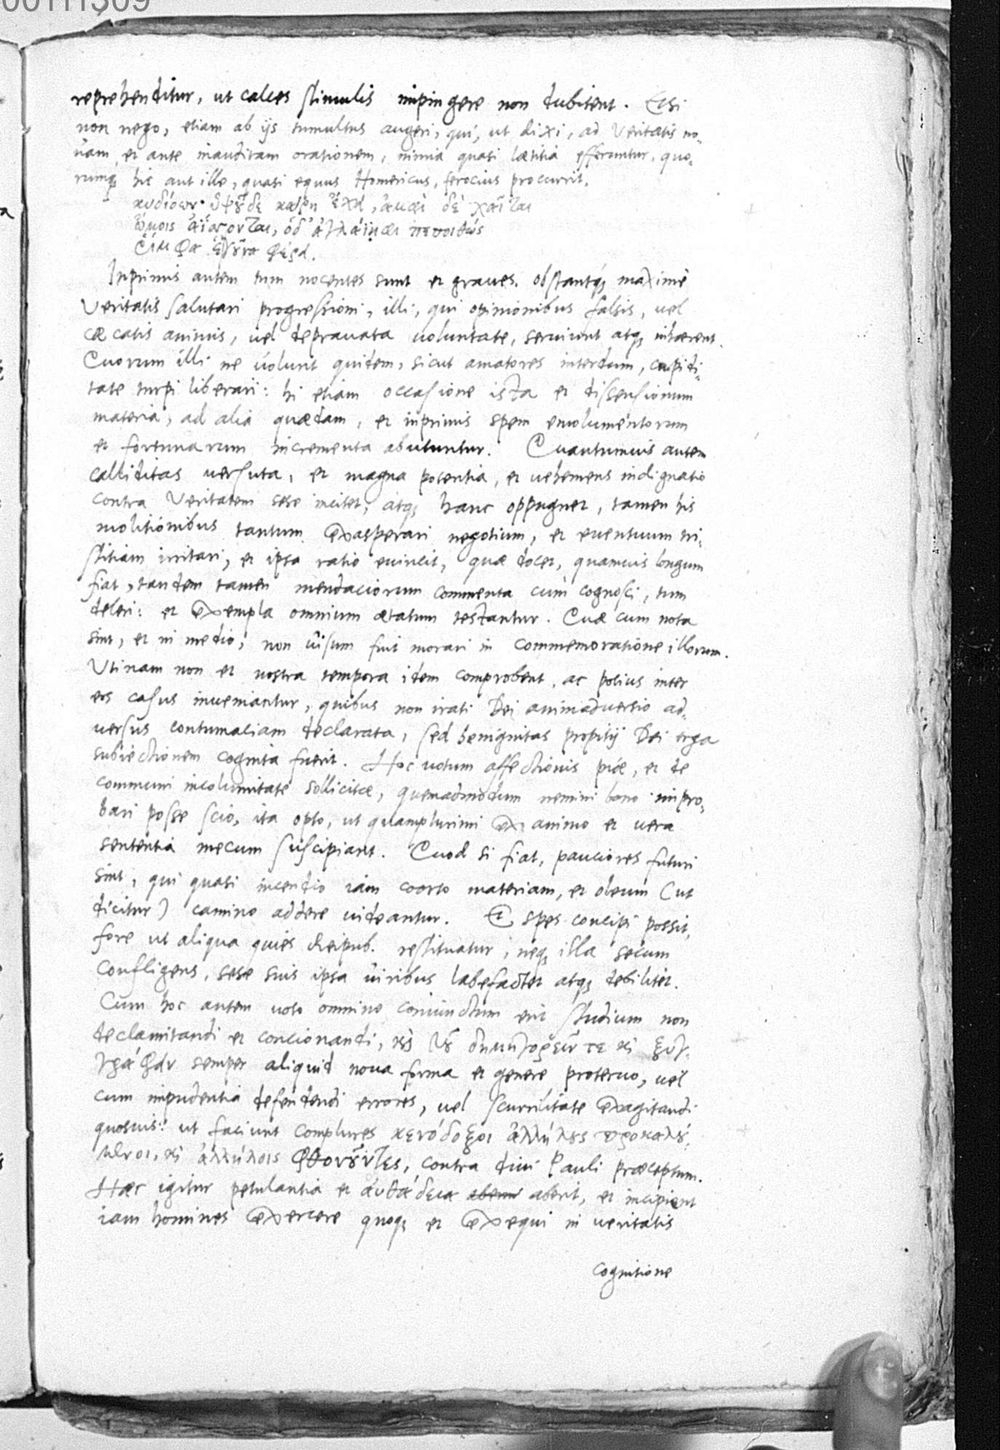 00111309
reprehenditur, ut calces stimulis impingere non dubitent. Etsi
non nego, etiam ab ijs tumultus augeri, qui, ut dixi, ad Veritatis no-
uam et ante inauditam orationem, nimia quasi lætitia efferuntur, quo-
rumq; hic aut ille, quasi equus Homericus, ferocius procurrit,
κυδιόων· ὑψοῦ δὲ κάρη ἔχει, ἀμφὶ δὲ χαῖται
ὤμοις ἀΐσσονται, ὁ δ' ἀγλαΐηφι πεποιθὼς
ῥίμφα ἑ γοῦνα φέρει.
Inprimis autem tum nocentes sunt et graues. obstantq; maxime
Veritatis salutari progressioni, illi, qui opinionibus falsis, uel
cæcatis animis, uel deprauata uoluntate, seruiunt atq; inhærent.
Quorum illi ne uolunt quidem, sicut amatores interdum, cupidi-
tate turpi liberari: hi etiam occasione ista et dissensionum
materia, ad alia quædam, et inprimis spem emolumentorum
et fortunarum incrementa abutuntur. Quantumuis autem
calliditas uersuta, et magna potentia, et uehemens indignatio
contra Veritatem sese incitet, atq; hanc oppugnet, tamen his
molitionibus tantum exasperari negotium, et euentuum tri-
stitiam irritari, et ipsa ratio euincit, quæ docet, quamuis longum
fiat, tandem tamen mendaciorum commenta cum cognosci, tum
deleri: et exempla omnium ætatum testantur. Quæ cum nota
sint, et in medio, non uisum fuit morari in commemoratione illorum.
Utinam non et nostra tempora idem comprobent, ac potius inter
eos casus inueniantur, quibus non irati Dei animaduersio ad-
uersus contumaciam declarata, sed benignitas propitij Dei erga
subiectionem cognita fuerit. Hoc uotum affectionis piæ, et de
communi incolumitate sollicitæ, quemadmodum nemini bono impro-
bari posse scio, ita opto, ut quamplurimi ex animo et uera
sententia mecum suscipiant. Quod si fiat, pauciores futuri
sint, qui quasi incendio iam coorto materiam, et oleum (ut
dicitur) camino addere uideantur. Et spes concipi possit,
fore ut aliqua quies Reipub. restituatur, neq; illa secum
confligens, sese suis ipsa uiribus labefactet atq; debilitet.
Cum hoc autem uoto omnino coniunctum erit studium non
declamitandi et concionandi, καὶ τοῦ δημηγορεῖν τε καὶ συγ-
γράφειν semper aliquid noua forma et genere proteruo, uel
cum impudentia defendendi errores, uel scurrilitate exagitandi
quosuis: ut faciunt complures κενόδοξοι ἀλλήλους προκαλού-
μενοι, καὶ ἀλλήλοις φθονοῦντες, contra diui Pauli præceptum.
Hæc igitur petulantia et αὐθάδεια aberit, et incipient
iam homines exercere quoq; et exequi in ueritatis
cognitione